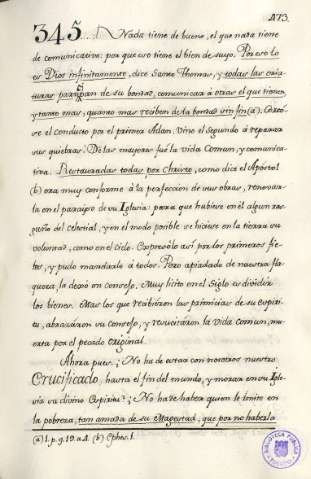 473.
345... Nada tiene de bueno, el que nada tiene
de comunicativo: por que eso tiene el bien de suyo. Por eso lo
es Dios infinitamente, dice Santo Thomas, y todas las cria
turas participan de su bondad, comunicara â otras el que tienen,
y tanto mas, quanto mas reciben de la bondad sin fin (a). Corto
se el conducto por el primer Adan. Vino el segundo â reparar
sus quiebras: De las mayores fuê la vida Comun, y comunica-
tiva. Restauradas todas por Christo, como dice el Apóstol
(b) era muy conforme â la perfeccion de sus obras, renovar
la en el paraiso de su Iglesia: para que hubiese en êl algun ras
guño del celestial, y en el modo posible se hiciese en la tierra su
voluntad, como en el cielo. Expresólo asi por los primeros fie
les, y pudo mandarlo â todos. Pero apiadado de nuestra fla
queza, lo dexó en consejo. Muy listo en el Siglo es dividir
los bienes. Mas los que recibieron las primicias de su espiri
tu, abrazaron su consejo, y resucitaron la vida comun, mu
erta por el pecado original.
Ahora pues: ¿No ha de estar con nosotros nuestro
Crucificado, hasta el fin del mundo, y morar en su Igle
sia su divino Espiritu? ¿No ha de haber quien le imite en
la pobreza, tan amada de su Magestad, que por no haberla
(a) 1. p. q. 19. a. 2. (b) Ephes. 1.
BIBLIOTECA PUBLICA